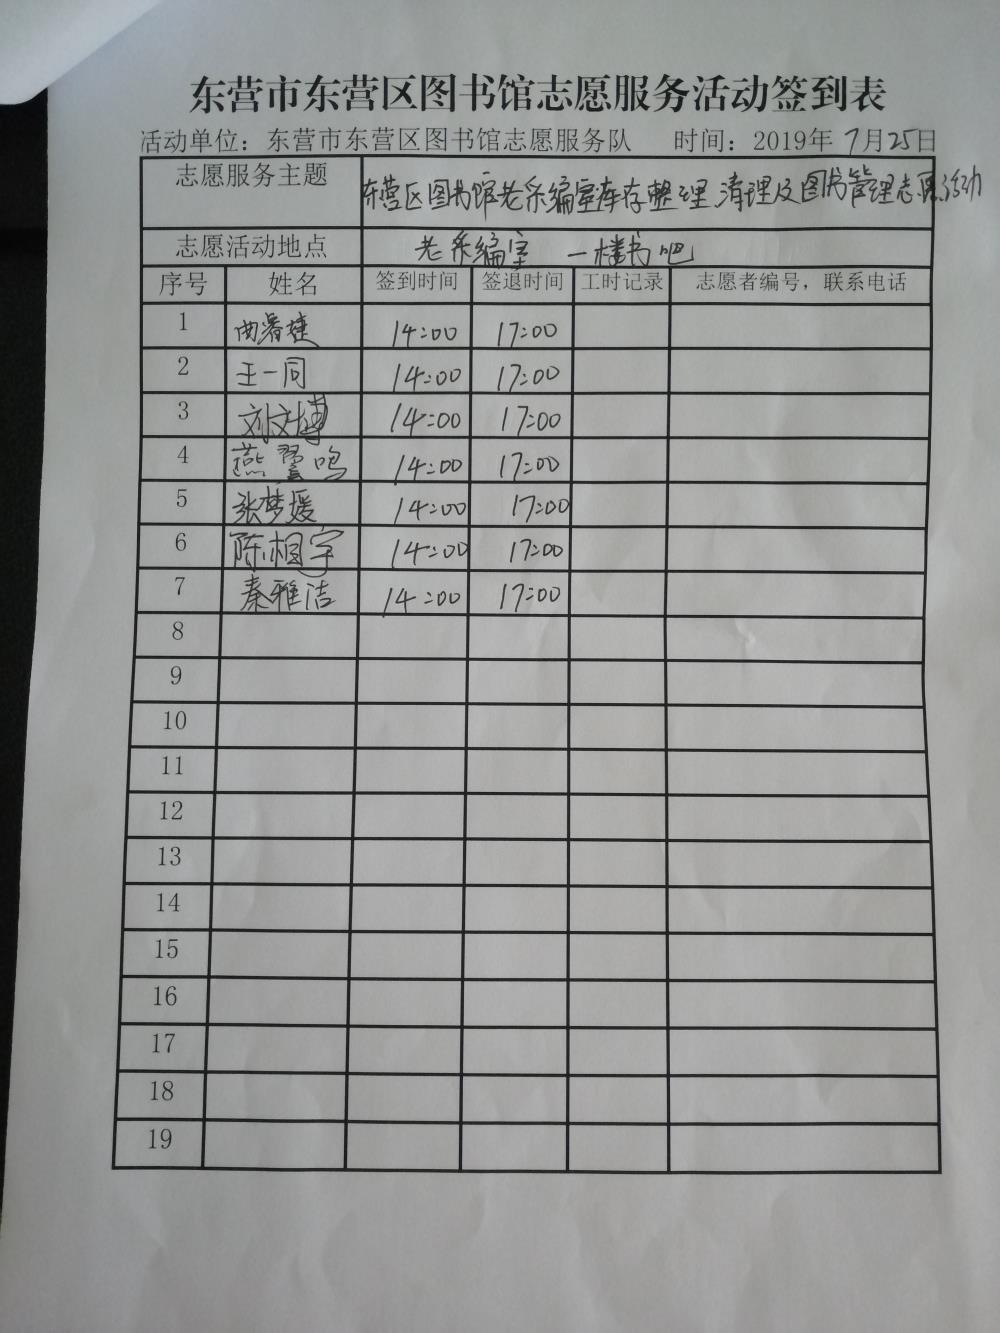 东营市东营区图书馆志愿服务活动签到表
活动单位：东营市东营区图书馆志愿服务队 时间：2019年7月25日
志愿服务主题 东营区图书馆老采编室库存整理、清理及图书管理志愿活动
志愿活动地点 老采编室 一楼书吧
序号 姓名 签到时间 签退时间 工时记录 志愿者编号，联系电话
1 14:00 17:00
2 王一同 14:00 17:00
3 刘文博 14:00 17:00
4 燕 鸣 14:00 17:00
5 张梦媛 14:00 17:00
6 陈相宇 14:00 17:00
7 秦雅洁 14:00 17:00
8
9
10
11
12
13
14
15
16
17
18
19